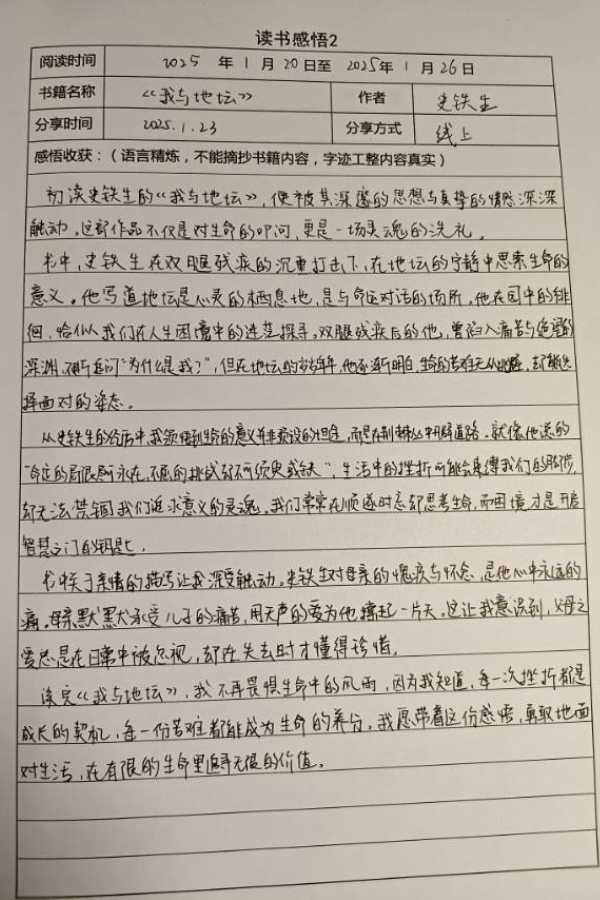 读书感悟2
阅读时间 2025 年 1 月 20 日至 2025年 1 月 26 日
书籍名称 《我与地坛》 作者 史铁生
分享时间 2025.1.23 分享方式 线上
感悟收获：（语言精炼，不能摘抄书籍内容，字迹工整内容真实）
初读史铁生的《我与地坛》，便被其深邃的思想与真挚的情感深深
触动。这部作品不仅是对生命的叩问，更是一场灵魂的洗礼。
书中，史铁生在双腿残疾的沉重打击下，在地坛的宁静中思索生命的
意义。他写道地坛是心灵的栖息地，是与命运对话的场所，他在园中的徘
徊，恰似我们在人生困境中的迷茫探寻。双腿残疾后的他，曾陷入痛苦与绝望的
深渊，不断追问“为什么是我？”，但在地坛的岁岁年年，他逐渐明白，生命的苦难无从逃避，却能选
择面对的姿态。
从史铁生的经历中，我领悟到生命的意义并非预设的坦途，而是在荆棘丛中开辟道路。就像他说的
“命定的局限尽可永在，不屈的挑战却不可须臾或缺”，生活中的挫折可能会束缚我们的脚步，
却无法禁锢我们追求意义的灵魂。我们常常在顺遂时忘却思考生命，而困境才是开启
智慧之门的钥匙。
书中关于亲情的描写让我深受触动。史铁生对母亲的愧疚与怀念，是他心中永远的
痛。母亲默默承受儿子的痛苦，用无声的爱为他撑起一片天。这让我意识到，父母之
爱总是在日常中被忽视，却在失去时才懂得珍惜。
读完《我与地坛》，我不再畏惧生命中的风雨，因为我知道，每一次挫折都是
成长的契机，每一份苦难都能成为生命的养分。我愿带着这份感悟，勇敢地面
对生活，在有限的生命里追寻无限的价值。